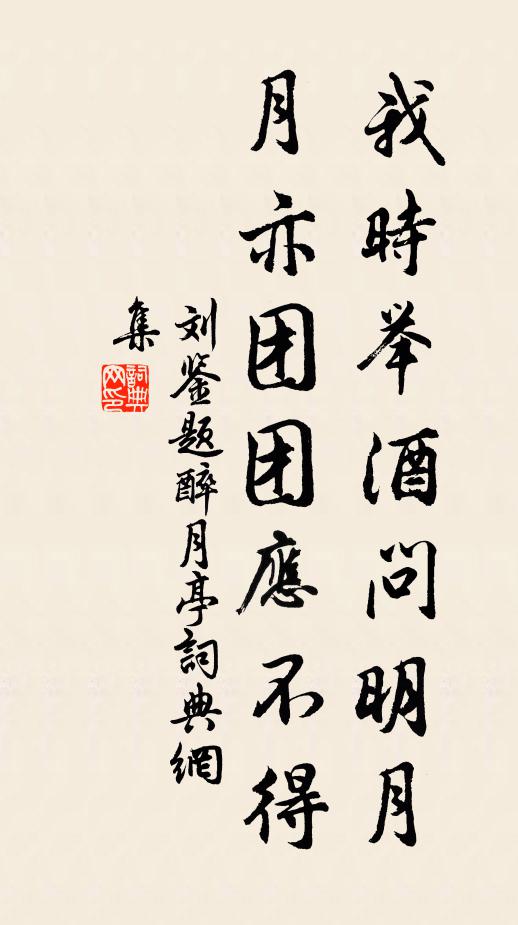 我時举酒問明月
月亦团团應不得
刘鉴题醉月亭詞典網
集
詞典
网印